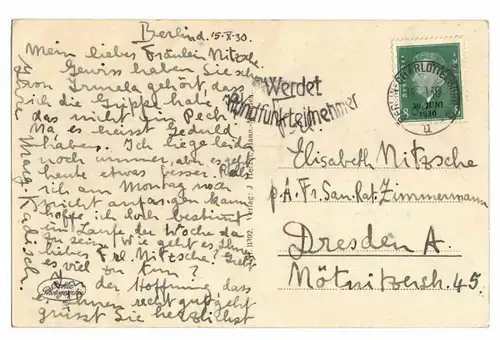 Berlin d. 15.X.30.
Mein liebes Fräulein Nitzsche.
Gewiss haben Sie schon
von Irmela gehört, dass
ich die Grippe habe. Ist
das nicht ein Pech?
Na, es heisst Geduld
haben. Ich liege leider
noch immer, aber es geht
heute etwas besser.
ich am Montag noch
nicht anfangen kann,
hoffe ich doch bestimmt
im Laufe der Woche da
zu sein. Wie geht es Ihnen
liebes Frl. Nitzsche? Gibt
es viel zu tun?
In der Hoffnung dass
es Ihnen recht gut geht
grüsst Sie herzlichst
Ihre Marg. Kadisch.
Werdet
Rundfunkteilnehmer
BERLIN-CHARLOTTENBURG
1930
Elisabeth Nitzsche
p. A. Fr. San. Rat. Zimmermann
Dresden A.
Nötnitzerstr. 45.
Photographie